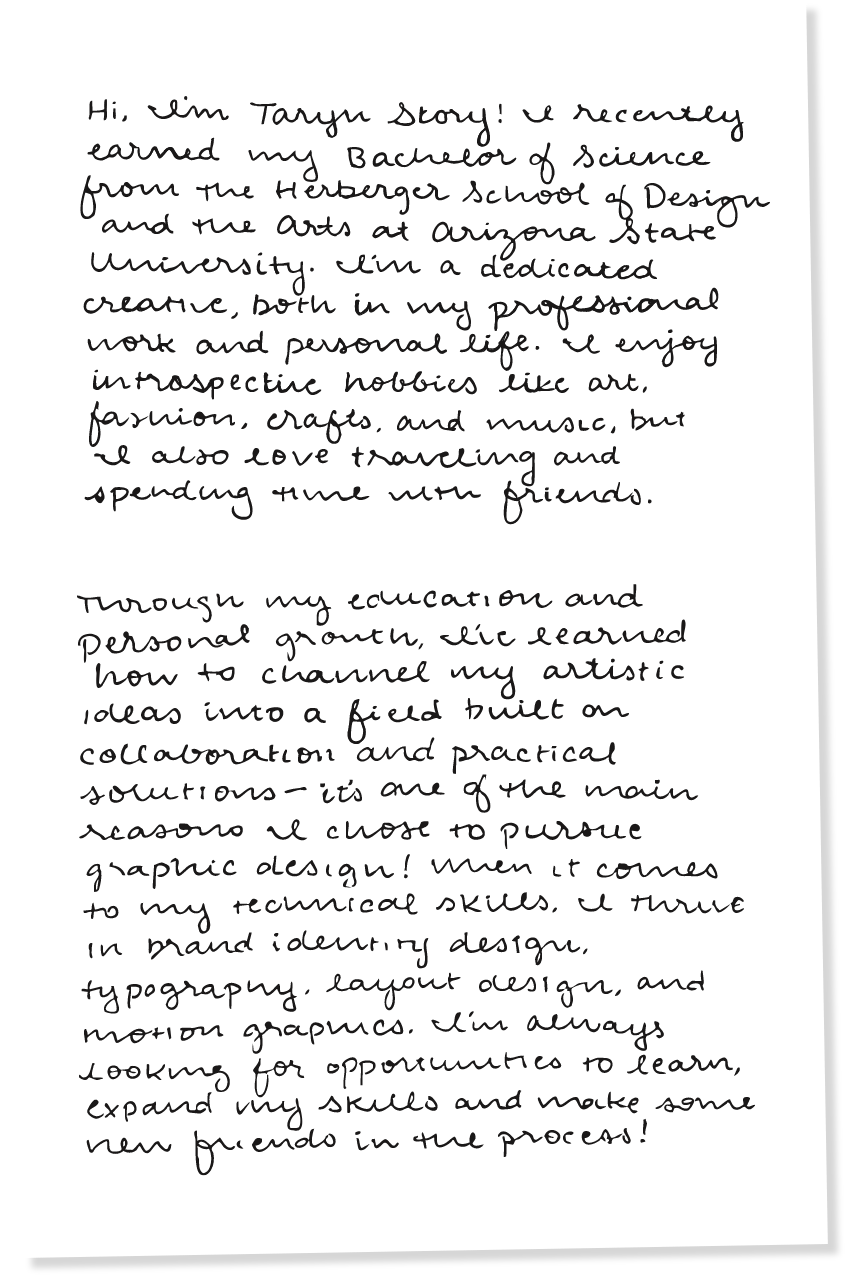 Hi, I'm Taryn Story! I recently
earned my Bachelor of Science
from the Herberger School of Design
and the Arts at Arizona State
University. I'm a dedicated
creative, both in my professional
work and personal life. I enjoy
introspective hobbies like art,
fashion, crafts, and music, but
I also love traveling and
spending time with friends.

Through my education and
personal growth, I've learned
how to channel my artistic
ideas into a field built on
collaboration and practical
solutions — it's one of the main
reasons I chose to pursue
graphic design! When it comes
to my technical skills, I thrive
in brand identity design,
typography, layout design, and
motion graphics. I'm always
looking for opportunities to learn,
expand my skills and make some
new friends in the process!